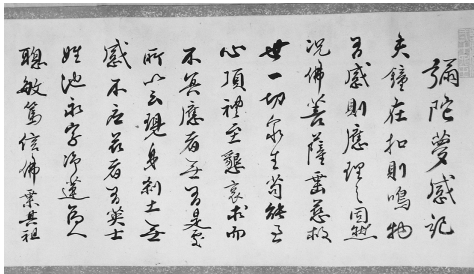 彌陀夢感記
夫鐘在扣則鳴物
有感則應理之固然
況佛菩薩垂慈救
世一切衆生苟能至
心頂禮至懇哀求而
不冥應者無有是處
所以云現身刹土無
感不應 者有 士
姓池永字 蓮為人
聰敏篤信佛乘其祖